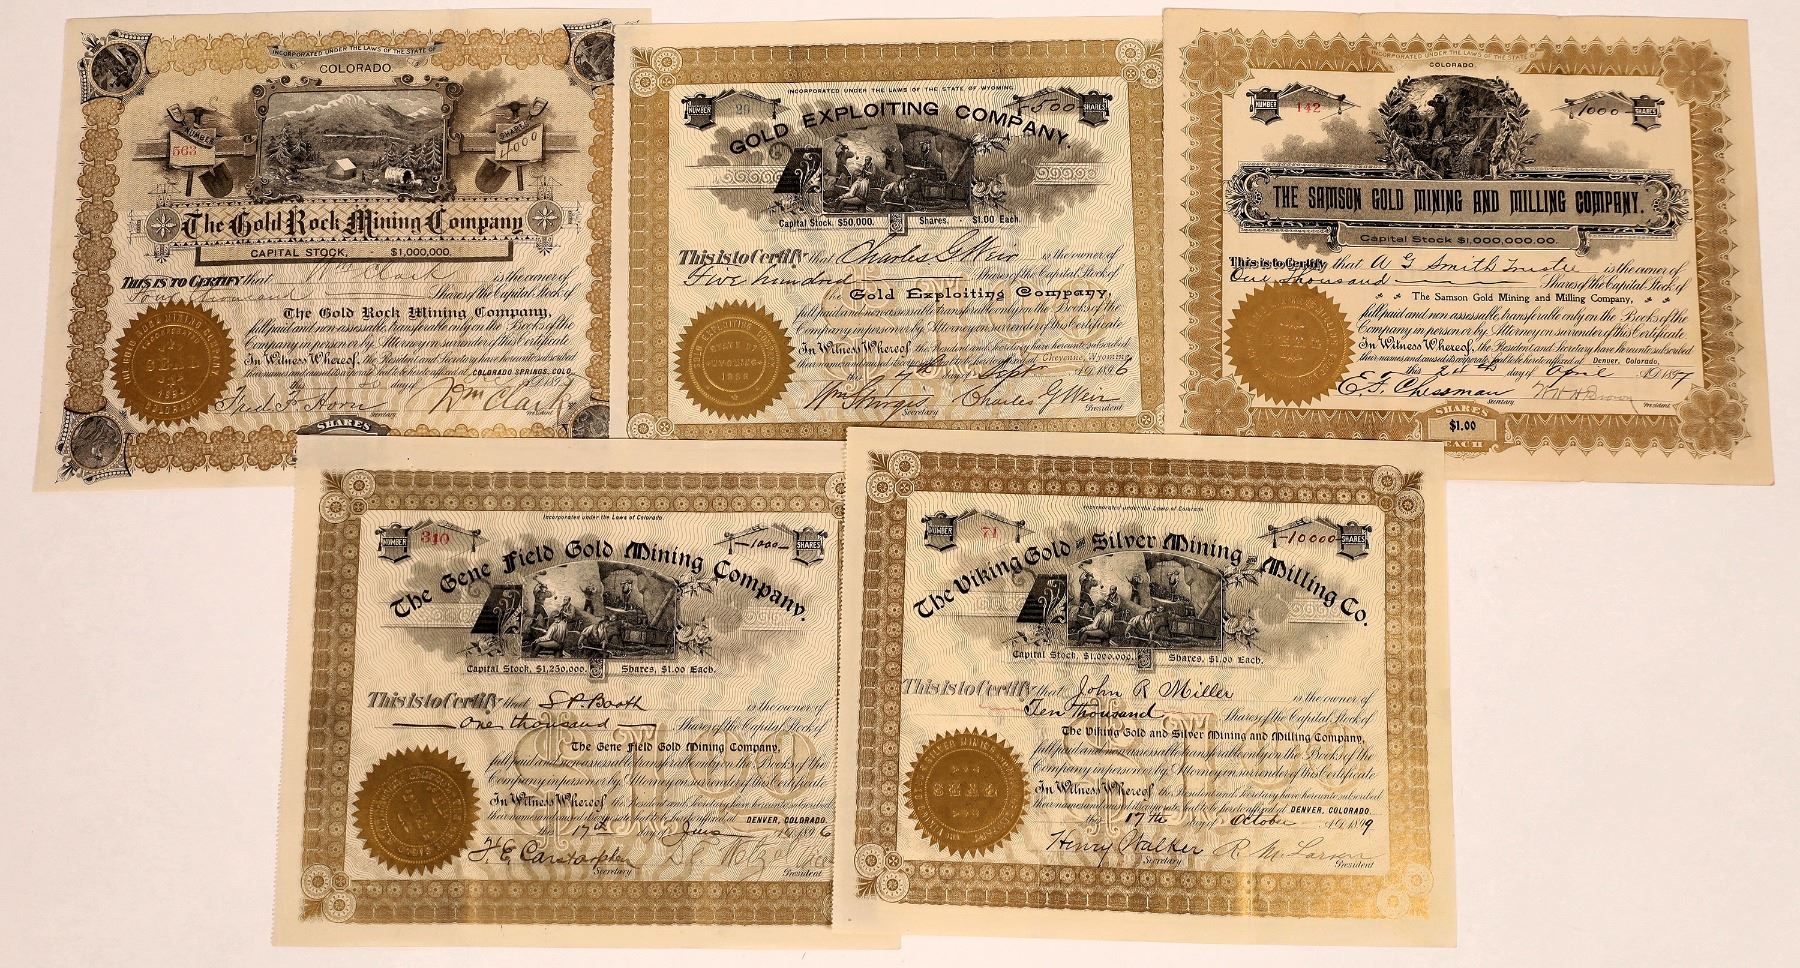 INCORPORATED UNDER THE LAWS OF THE STATE OF
COLORADO
NUMBER
563
SHARES
4000
The Gold Rock Mining Company
CAPITAL STOCK, $1,000,000.
THIS IS TO CERTIFY that Wm Clark is the owner of
Four thousand Shares of the Capital Stock of
The Gold Rock Mining Company,
full paid and non-assessable, transferable only on the Books of the
Company in person or by Attorney on surrender of this Certificate.
In Witness Whereof, the President and Secretary have hereunto subscribed
their names and caused its corporate seal to be hereto affixed at COLORADO SPRINGS, COLO.
this 20 day of A.D. 189
Fred F. Horn Secretary Wm Clark President
SHARES
INCORPORATED UNDER THE LAWS OF THE STATE OF WYOMING
NUMBER
29
500
SHARES
GOLD EXPLOITING COMPANY.
Capital Stock, $50,000. Shares, $1.00 Each.
This is to Certify that Charles G Weir is the owner of
Five hundred Shares of the Capital Stock of
the Gold Exploiting Company,
full paid and non assessable, transferable only on the Books of the
Company in person or by Attorney on surrender of this Certificate
In Witness Whereof the President and Secretary have hereunto subscribed
Cheyenne, Wyoming
this 7th day of Sept A.D. 1896
Wm Sturgis Secretary Charles G Weir President
INCORPORATED UNDER THE LAWS OF THE STATE OF
COLORADO.
NUMBER
142
1000
SHARES
THE SAMSON GOLD MINING AND MILLING COMPANY.
Capital Stock $1,000,000.00.
This is to Certify that A G Smith Trustee is the owner of
One thousand Shares of the Capital Stock of
The Samson Gold Mining and Milling Company,
full paid and non assessable, transferable only on the Books of the
Company in person or by Attorney on surrender of this Certificate.
In Witness Whereof, the President and Secretary have hereunto subscribed
their names and caused its corporate seal to be hereto affixed at Denver, Colorado,
this day of April A.D. 1897
E. F. Chessman Secretary W H H Brown President
SHARES
$1.00
EACH
Incorporated under the Laws of Colorado
NUMBER
310
1000
SHARES
The Gene Field Gold Mining Company.
Capital Stock, $1,250,000. Shares, $1.00 Each.
This is to Certify that S P Booth is the owner of
one thousand Shares of the Capital Stock of
The Gene Field Gold Mining Company,
full paid and non assessable transferable only on the Books of the
Company in person or by Attorney on surrender of this Certificate
In Witness Whereof, the President and Secretary have hereunto subscribed
their names and caused its corporate seal to be hereto affixed at DENVER, COLORADO.
this 17th day of June A.D. 1896
Secretary Vice President
Incorporated under the Laws of Colorado
NUMBER
71
10000
SHARES
The Viking Gold and Silver Mining and Milling Co.
Capital Stock, $1,000,000. Shares, $1.00 Each.
This is to Certify that John R Miller is the owner of
Ten thousand Shares of the Capital Stock of
The Viking Gold and Silver Mining and Milling Company,
full paid and non assessable transferable only on the Books of the
Company in person or by Attorney on surrender of this Certificate
In Witness Whereof, the President and Secretary have hereunto subscribed
their names and caused its corporate seal to be hereto affixed at DENVER, COLORADO.
this 17th day of October A.D. 1899
Henry Walker Secretary R. M. Larsen President